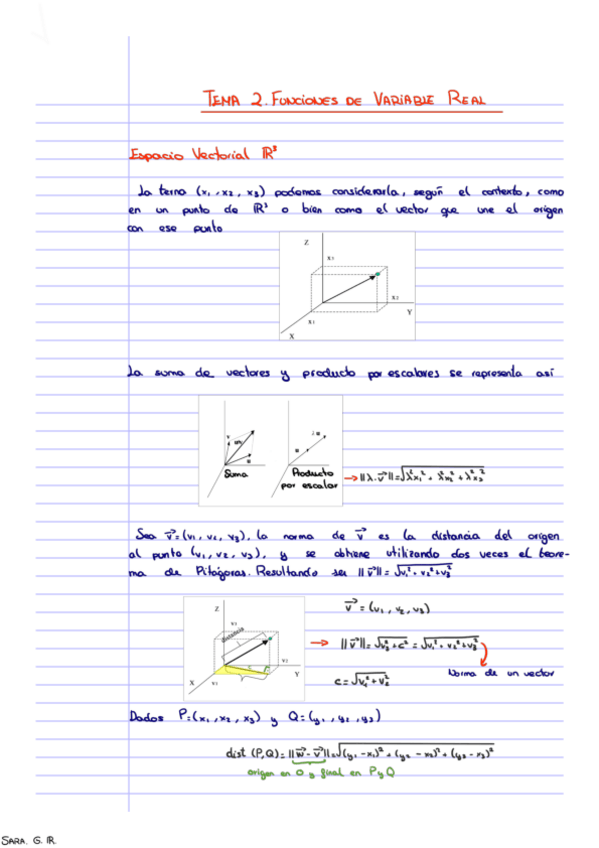 TEMA 2. FUNCIONES DE VARIABLE REAL
Espacio Vectorial ℝ³
La terna (x₁, x₂, x₃) podemos considerarla, según el contexto, como
en un punto de ℝ³ o bien como el vector que une el origen
con ese punto
Z
x₃
x₂
Y
x₁
X
La suma de vectores y producto por escalares se representa así
Suma
Producto
por escalar
→ ||λ·v⃗|| = √λ²x₁² + λ²x₂² + λ²x₃²
Sea v⃗ = (v₁, v₂, v₃), la norma de v⃗ es la distancia del origen
al punto (v₁, v₂, v₃), y se obtiene utilizando dos veces el teore-
ma de Pitágoras. Resultando ser ||v⃗|| = √v₁² + v₂² + v₃²
Z
v₃
distancia
v₂
Y
v₁
X
v⃗ = (v₁, v₂, v₃)
→ ||v⃗|| = √v₃² + c² = √v₁² + v₂² + v₃²
c = √v₁² + v₂²
Norma de un vector
Dados P = (x₁, x₂, x₃) y Q = (y₁, y₂, y₃)
dist (P,Q) = ||w⃗ - v⃗|| = √(y₁ - x₁)² + (y₂ - x₂)² + (y₃ - x₃)²
origen en O y final en P y Q
SARA. G. R.